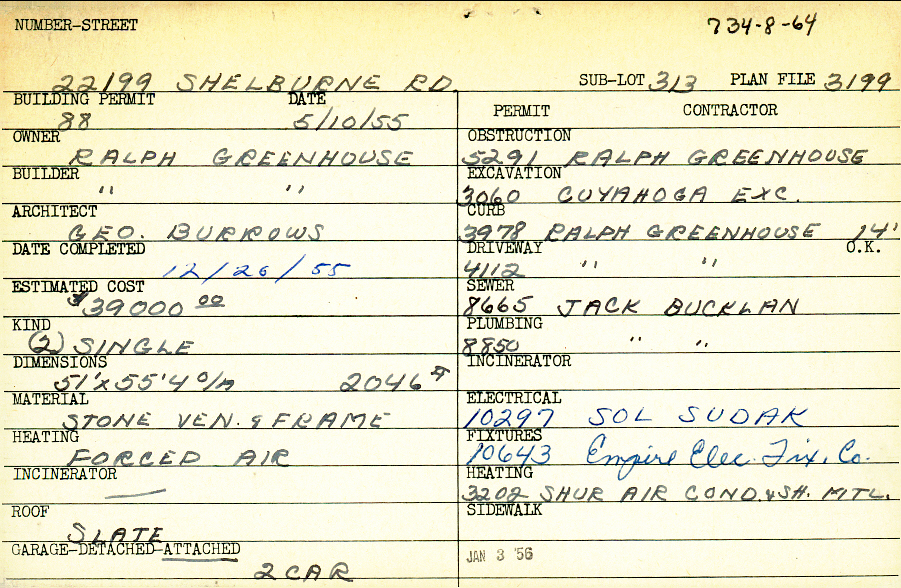 NUMBER-STREET
734-8-64
22199 SHELBURNE RD. SUB-LOT 313 PLAN FILE 3199
BUILDING PERMIT DATE
88 5/10/55
OWNER
RALPH GREENHOUSE
BUILDER
" "
ARCHITECT
GEO. BURROWS
DATE COMPLETED
12/26/55
ESTIMATED COST
$39000 00
KIND
(2) SINGLE
DIMENSIONS
51'x55'4 o/a 2046 #
MATERIAL
STONE VEN. & FRAME
HEATING
FORCED AIR
INCINERATOR
—
ROOF
SLATE
GARAGE-DETACHED-ATTACHED
2 CAR
PERMIT CONTRACTOR
OBSTRUCTION
5291 RALPH GREENHOUSE
EXCAVATION
3060 CUYAHOGA EXC.
CURB
3978 RALPH GREENHOUSE 14'
DRIVEWAY O.K.
4112 " "
SEWER
8665 JACK BUCKLAN
PLUMBING
8850 " "
INCINERATOR
ELECTRICAL
10297 SOL SUDAK
FIXTURES
10643 Empire Elec. Fix. Co.
HEATING
3202 SHUR AIR COND. & SH. MTL.
SIDEWALK
JAN 3 '56